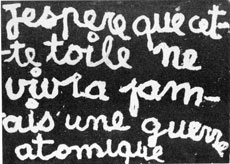 J'espère que cet-
-te toile ne
vivra jam-
ais une guerre
atomique